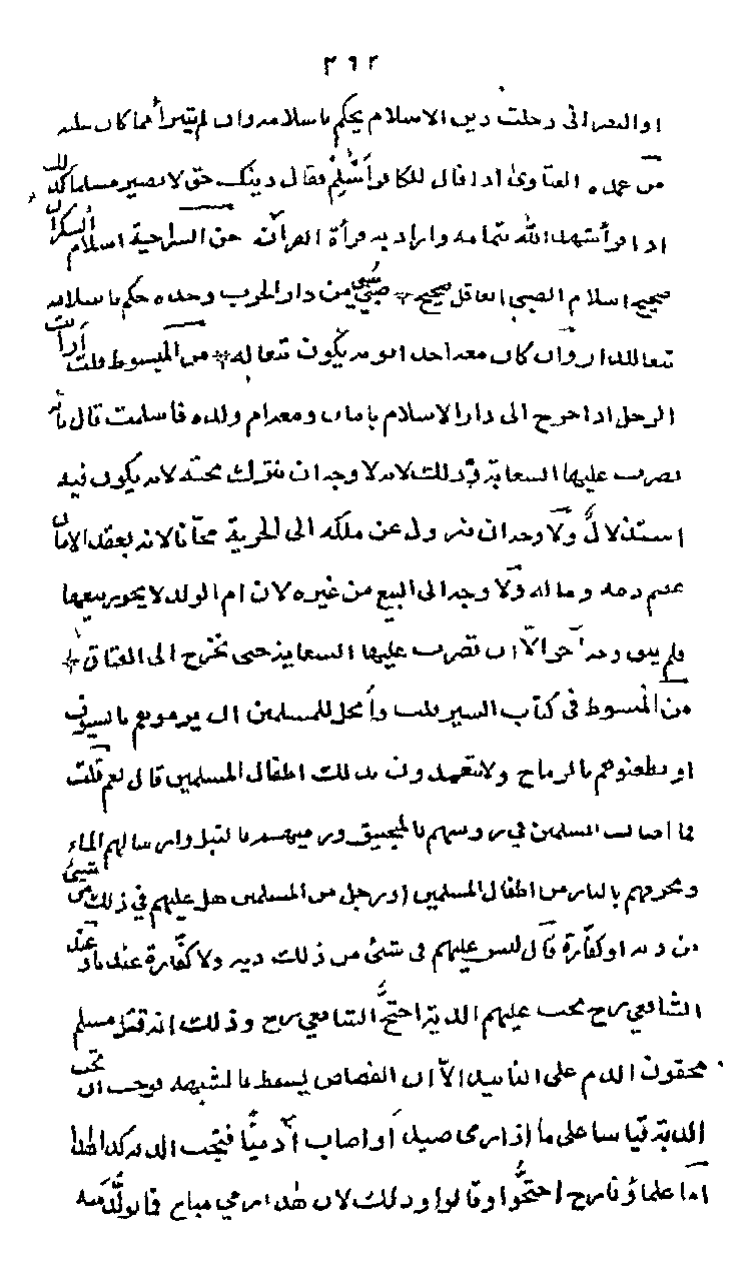 ٣٦٢
او النصرانى دخلت دين الاسلام يحكم باسلامه وان لم يتبرأ مما كان عليه
من عمدة الفتاوى اذا قال للكافر أسلم فقال دينك حق لا يصير مسلما كذلك
اذا قرأ شهد الله بتمامه واراد به قرأة القرآن من السراجية اسلام السكران
صحيح اسلام الصبى العاقل صحيح صبى سبى من دار الحرب وحده حكم باسلامه
تبعا للدار وان كان معه احد ابويه يكون تبعا له من المبسوط قلت أرأيت
الرجل اذا خرج الى دار الاسلام بامان ومعه ام ولده فاسلمت قال
تضرب عليها السعاية وذلك لانه لا وجه ان تترك تحته لانه يكون فيه
استذلال ولا وجه ان تزول عن ملكه الى الحرية مجانا لانه بعقد الامان
عصم دمه وماله ولا وجه الى البيع من غيره لان ام الولد لا يجوز بيعها
فلم يبق وجه آخر الا ان تضرب عليها السعاية حتى تخرج الى العتاق
من المبسوط فى كتاب السير قلت وأيحل للمسلمين ان بالسيوف
او يطعنوهم بالرماح ولا يتعمدون بذلك اطفال المسلمين قال نعم قلت
فما اصاب المسلمين فى بالمنجنيق ورميهم بالنبل وارسالهم الماء
وتحرقهم بالنار من اطفال المسلمين او رجل من المسلمين هل عليهم فى ذلك شيئ
من دية او كفارة قال ليس عليهم فى شئ من ذلك دية ولا كفارة عندنا وعند
الشافعي رح يجب عليهم الدية احتج الشافعي رح وذلك انه قتل مسلم
محقون الدم على التأبيد الا ان القصاص يسقط بالشبهة فوجب ان تجب
الدية قياسا على ما اذا رمى صيدا أو اصاب آدميا فتجب الدية كذا هذا
اما علماؤنا رح احتجوا وقالوا وذلك لان هذا رمي مباح فما تولد منه